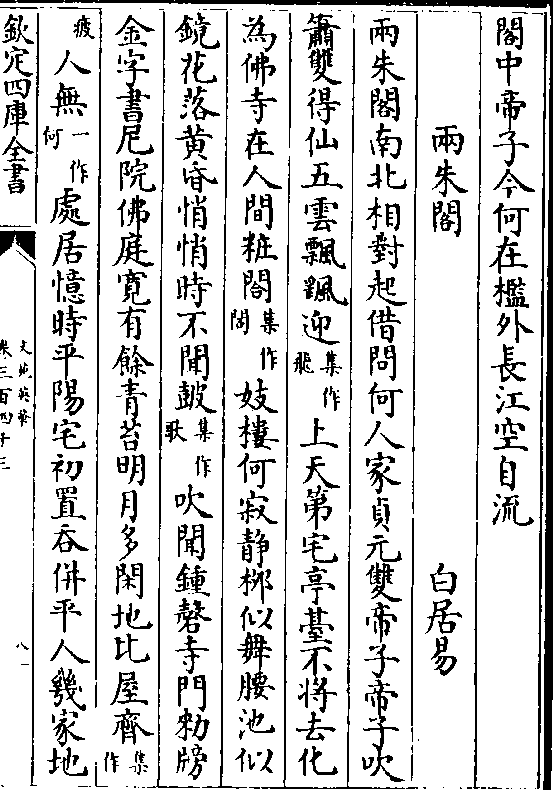 閣中帝子今何在檻外長江空自流
兩朱閣 白居易
兩朱閣南北相對起借問何人家貞元雙帝子帝子吹
簫雙得仙五雲飄颻迎集作飛上天第宅亭臺不將去化
為佛寺在人間粧閣集作閣妓樓何寂静栁似舞腰池似
鏡花落黄昏悄悄時不聞皷集作歌吹聞鍾磬寺門勑牓
金字書尼院佛庭寛有餘青苔明月多閑地比屋齊集作
疲人無一作何處居憶昨平陽宅初置吞併平人幾家地
欽定四庫全書
文苑英華
卷三百四十三
八